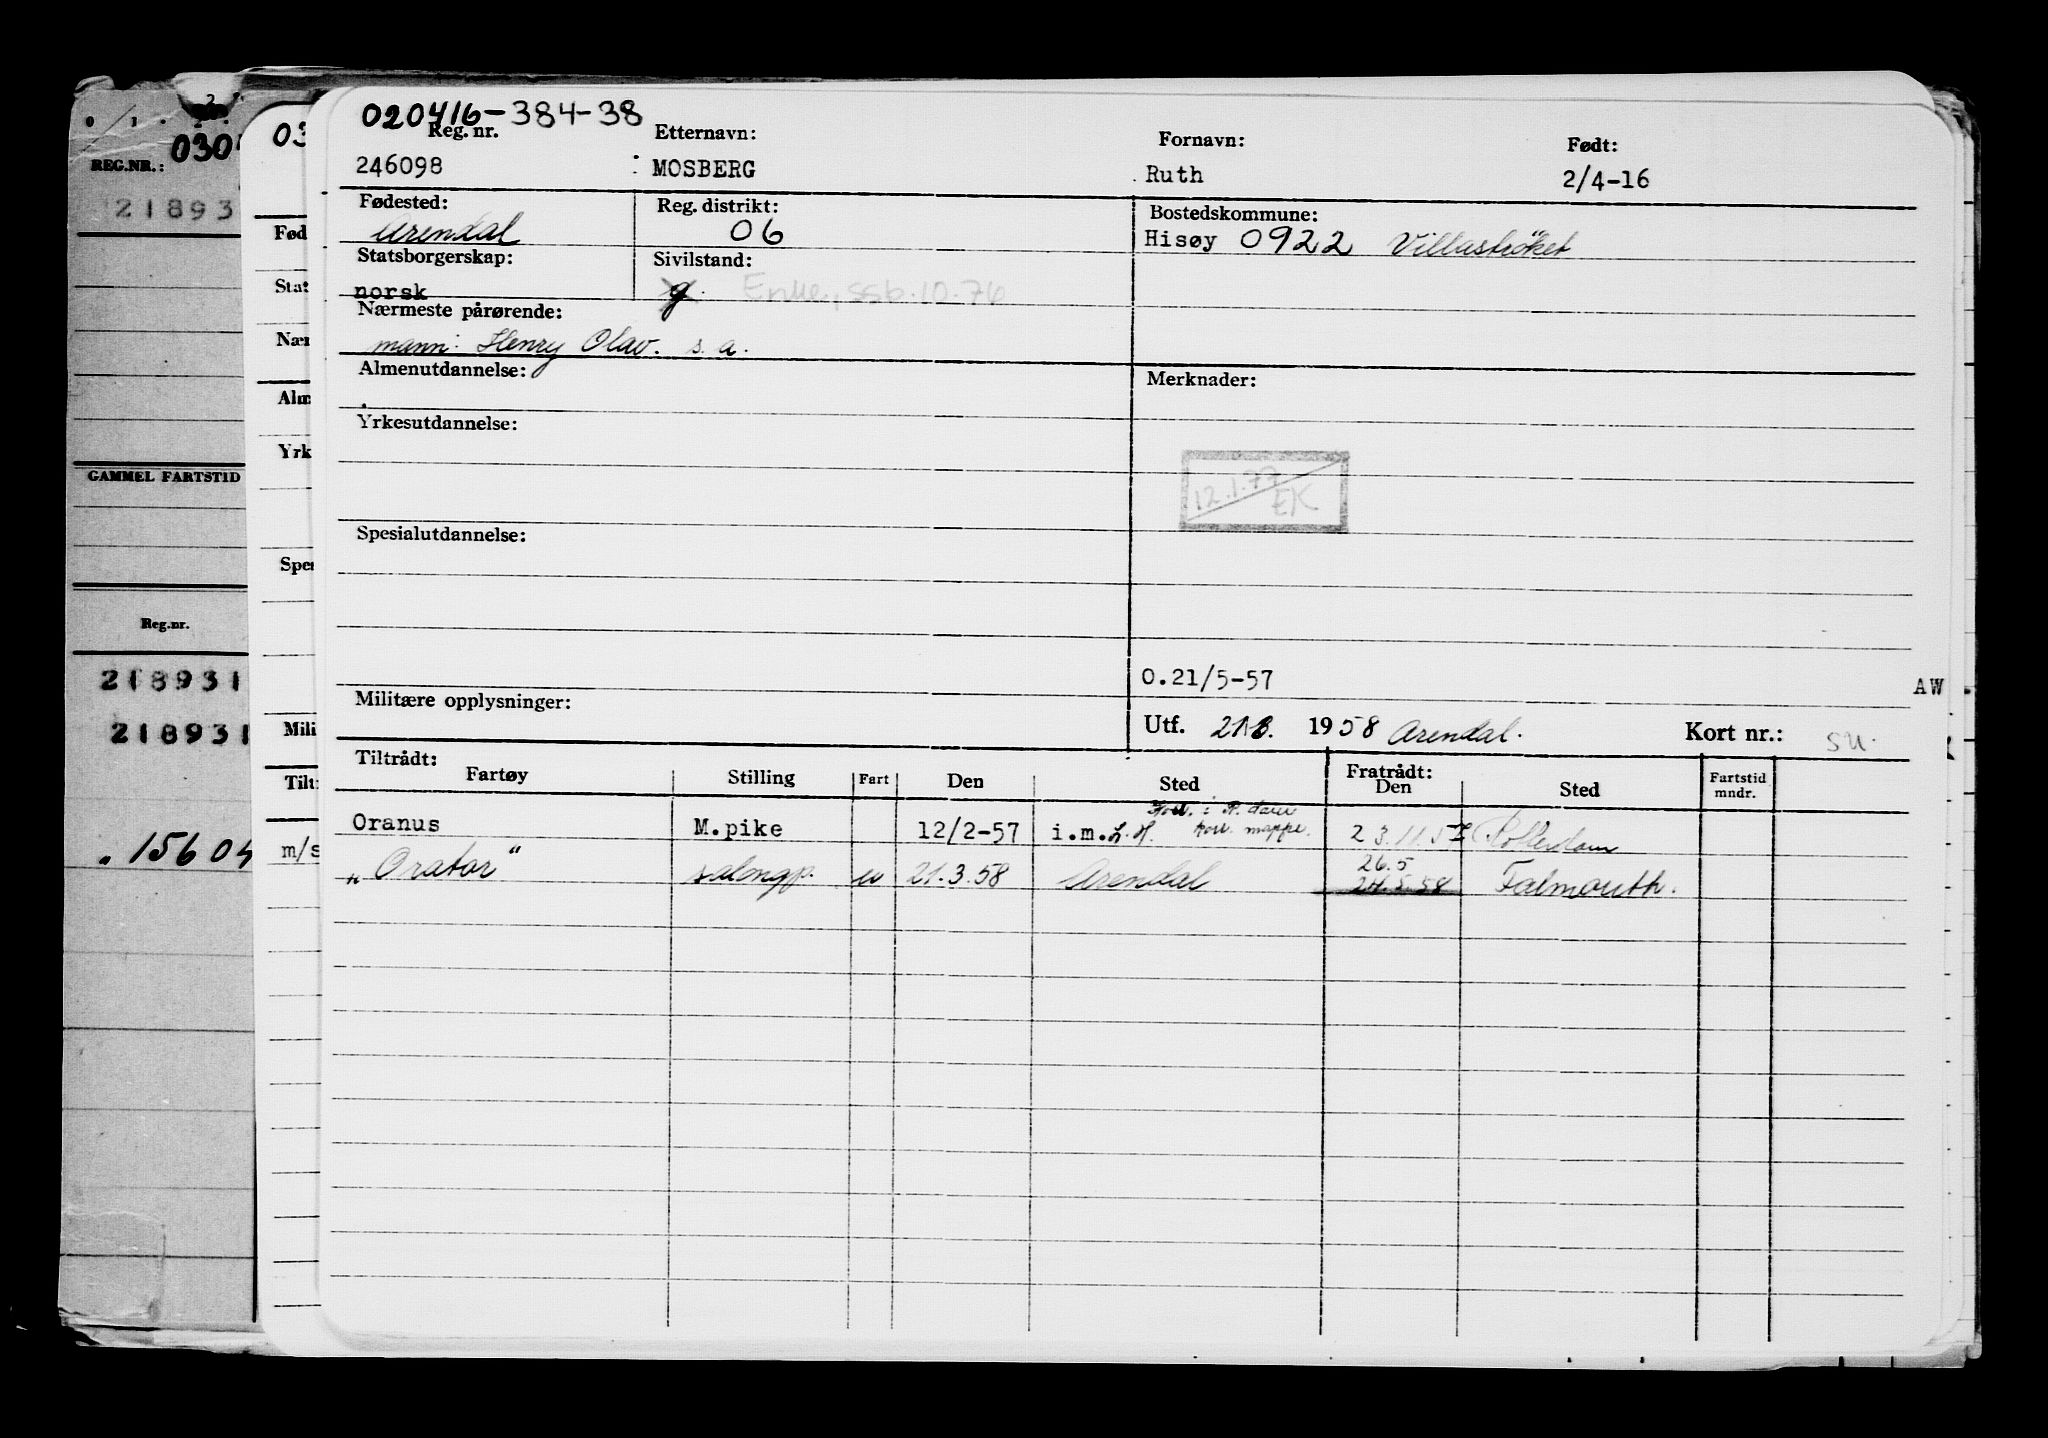 020416-384-38
Reg. nr. Etternavn: Fornavn: Født:
246098 MOSBERG Ruth 2/4-16
Fødested: Reg. distrikt: Bostedskommune:
Arendal 06 Hisøy 0922 Villastrøket
Statsborgerskap: Sivilstand:
norsk g Enke, ssb.10.76
Nærmeste pårørende:
mann: Henry Olav. s. a.
Almenutdannelse: Merknader:
Yrkesutdannelse:
12.1.77
EK
Spesialutdannelse:
O.21/5-57 AW
Militære opplysninger:
Utf. 1958 Arendal. Kort nr.: su.
Tiltrådt: Fratrådt:
Fartøy Stilling Fart Den Sted Den Sted Fartstid mndr.
i R.dam
mappe.
Oranus M.pike 12/2-57 i.m. 23.11.57 Rotterdam
26.5
„Orator“ salongp. u 21.3.58 Arendal 24.5.58 Falmouth.
0 1 2
REG.NR.: 030
21893
GAMMEL FARTSTID
Reg.nr.
218931
218931
15604
03
Fød
Stat
Nær
Alm
Yrk
Spes
Mili
Tilt
m/s